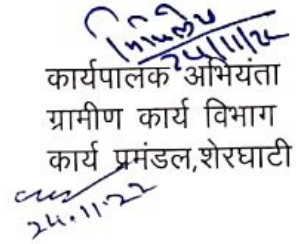 24/11/22
कार्यपालक अभियंता
ग्रामीण कार्य विभाग
कार्य प्रमंडल,शेरघाटी
24.11.22